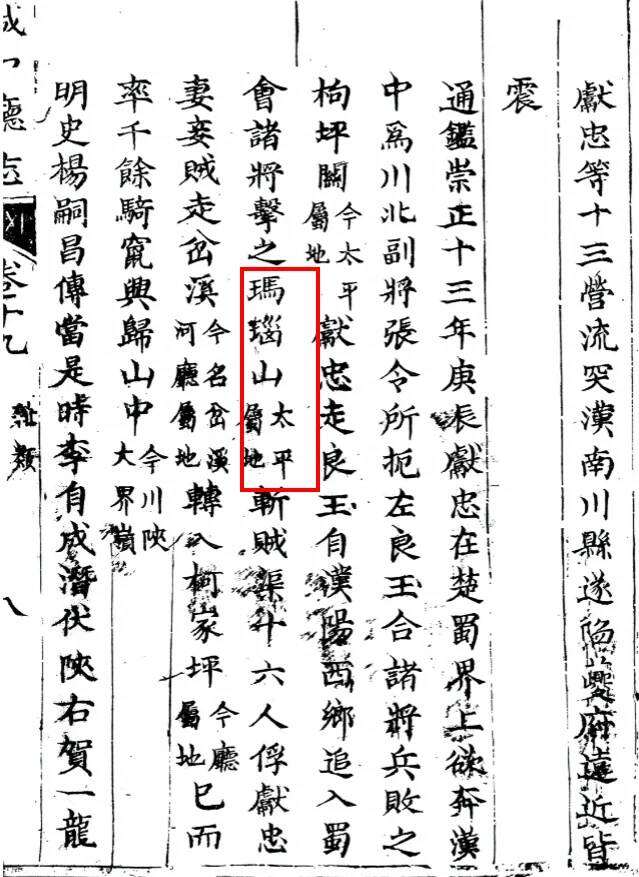 獻忠等十三營流突漢南川縣遂陷夔府遠近皆
震
通鑑崇正十三年庚辰獻忠在楚蜀界上欲奔漢
中爲川北副將張令所扼左良玉合諸將兵敗之
枸坪關今太平屬地獻忠走良玉自漢陽西鄉追入蜀
會諸將擊之瑪瑙山太平屬地斬賊渠十六人俘獻忠
妻妾賊走岔溪今名岔溪河廳屬地轉入柯家坪今廳屬地已而
率千餘騎竄興歸山中今川陝大界嶺
明史楊嗣昌傳當是時李自成潛伏陝右賀一龍
廳志 卷十九 紀類 八